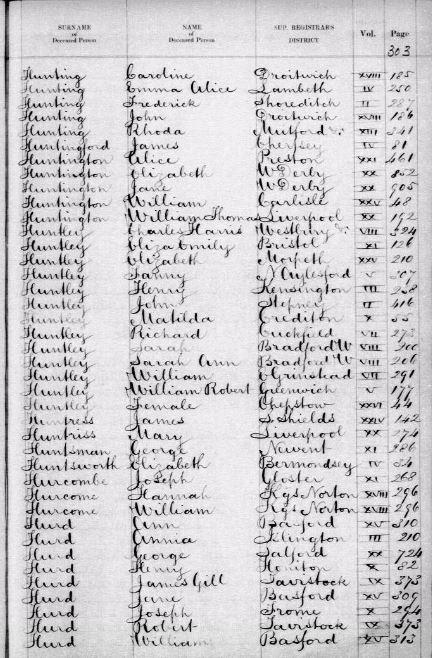 SURNAME of Deceased Person NAME of Deceased Person SUP. REGISTRAR'S DISTRICT Vol. Page
303
Hunting Caroline Droitwich XVIII 185
Hunting Emma Alice Lambeth IV 250
Hunting Frederick Shoreditch II 287
Hunting John Droitwich XVIII 186
Hunting Rhoda Mutford &c. XIII 341
Huntingford James Chertsey IV 81
Huntington Alice Preston XXI 461
Huntington Elizabeth W Derby XX 852
Huntington Jane W Derby XX 905
Huntington William Carlisle XXV 48
Huntington William Thomas Liverpool XX 192
Huntley Charles Harris Westbury &c. VIII 324
Huntley Eliza Emily Bristol XI 126
Huntley Elizabeth Morpeth XXV 210
Huntley Fanny N Aylesford V 307
Huntley Henry Kensington III
Huntley John Stepney II 416
Huntley Matilda Crediton X 55
Huntley Richard Cuckfield VII 273
Huntley Sarah Bradford W VIII
Huntley Sarah Ann Bradford W VIII 206
Huntley William E Grinstead VII 291
Huntley William Robert Greenwich V 177
Huntley Female Chepstow XXVI 44
Huntress James S Shields XXIV 142
Huntriss Mary Liverpool XX 274
Huntsman George Newent XI 286
Huntsworth Elizabeth Bermondsey IV 54
Hurcombe Joseph Gloster XI 268
Hurcome Hannah Kgs Norton XVIII 296
Hurcome William Kgs Norton XVIII 296
Hurd Ann Basford XV 310
Hurd Annia Islington III 210
Hurd George Salford XX 724
Hurd Henry Honiton X 82
Hurd James Gill Tavistock IX 373
Hurd Jane Basford XV 309
Hurd Joseph Frome X 294
Hurd Robert Tavistock IX 373
Hurd William Basford XV 313